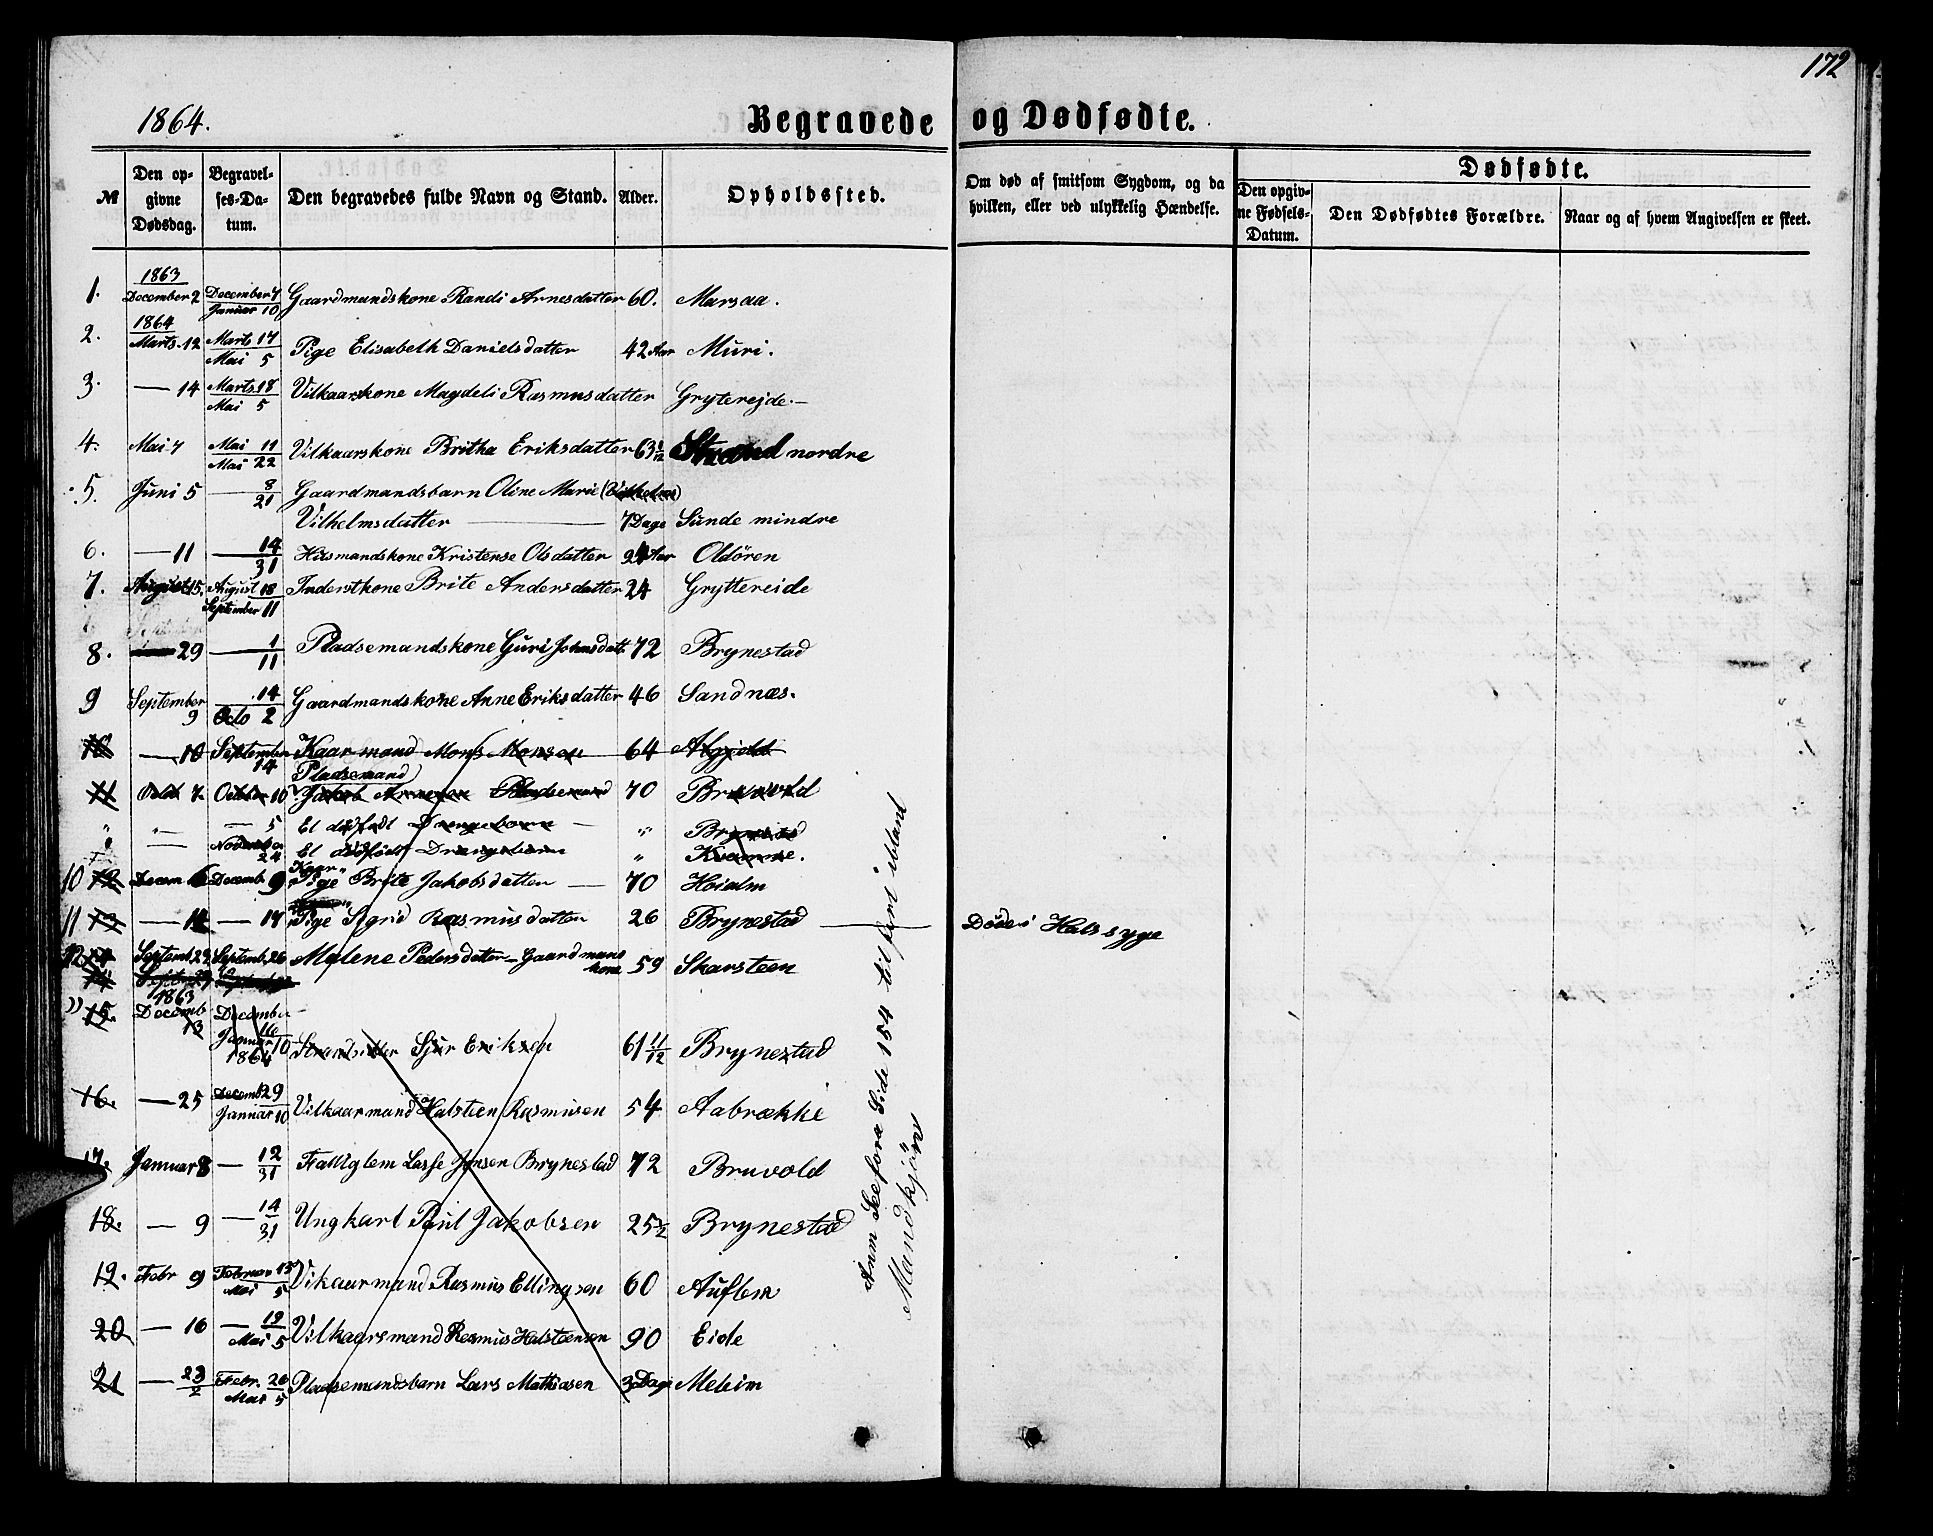 172
1864.
Begravede og Dødfødte.
№ Den opgivne Dødsdag. Begravelses-Datum. Den begravedes fulde Navn og Stand. Alder. Opholdssted. Om død af smitsom Sygdom, og da hvilken, eller ved ulykkelig Hændelse. Dødfødte.
Den opgivne Fødsels-Datum. Den Dødfødtes Forældre. Naar og af hvem Angivelsen er skeet.
1863
1. December 2 December 7 Januar 10 Gaardmandskone Randi Arnesdatter 60. Marsaa.
1864
2. Marts 12 Marts 17 Mai 5 Pige Elisabeth Danielsdatter 42 Aar Muri.
3. — 14 Marts 18 Mai 5 Vilkaarskone Magdeli Rasmusdatter Gryterejde.—
4. Mai 7 Mai 11 Mai 22 Vilkaarskone Britha Eriksdatter 63 1/12 Strand nordre
5. Juni 5 — 8 21 Gaardmandsbarn Oline Marie
Vilhelmsdatter — 7 Dage Sunde mindre
6. — 11 — 14 31 Husmandskone Kristense Olsdatter 24 Aar Oldøren
7. August 15. August 18 September 11 Inderstkone Brite Andersdatter 24 Gryttereide
8. 29 — 1 11 Pladsemandskone Guri Johnsdatt. 72 Brynestad
9 September 9 — 14 Octo 2 Gaardmandskone Anne Eriksdatter 46 Sandnæs.
10 — 10 September 14 Kaarmand Mons Monsen 64
Pladsemand
11 Octob 7. October 10 Jakob Arnesen Pladsemand 70 Bruvold
" "— — 5 Et dødfødt Drengebarn — " Brynestad
" November 24 Et dødfødt Drengebarn " Kvamme.
Kaar
10 12 Decem 6 Decemb 9 Pige Brite Jakobsdatter — 70 Hoialm
11 13 — 14 — 17 Pige Sigrid Rasmusdatter 26 Brynestad — Døde i Halssyge
12 14 Septemb. 22 Septemb. 26 Malene Pedersdatter — Gaardmans kone 59 Skarsteen
1863
15. Decemb 13 December 16 Januar 10 1864 Strandsidder Sjur Eriksen 61 11/12 Brynestad
16. — 25 Decemb 29 Januar 10 Vilkaarmand Halsteen Rasmusen 54 Aabrække
17. Januar 8 — 12 31 Fattiglem Lasse Jensen Brynestad 72 Bruvold
18. — 9 — 14 31 Ungkarl Paul Jakobsen 25 1/2 Brynestad
19. Febr 9 Februar 13 Mai 5 Vikaarmand Rasmus Ellingsen 60 Auflem
20 — 16 — 19 Mai 5 Vilkaarsmand Rasmus Halsteensen 90 Eide
21 — 23/2 Febr. 26 Mai 5 Pladsemandsbarn Lars Mathiasen 3 Dage Meleim
Anm See fora Side 154 til før i bland
Mandkjøn